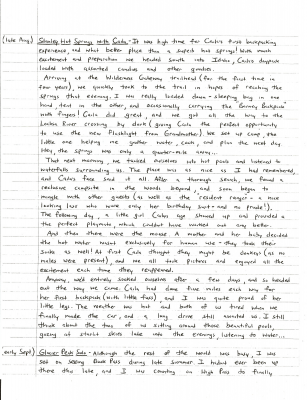 (late Aug) Stanley Hot Springs with Cada - It was high time for Cada's first backpacking
experience, and what better place than a superb hot springs! With much
excitement and preparation we headed south into Idaho, Cada's daypack
loaded with assorted candies and other goodies.
Arriving at the Wilderness Gateway trailhead (for the first time in
four years), we quickly took to the trail in hopes of reaching the
springs that evening. I was really loaded down - sleeping bag in one
hand, tent in the other, and occasionally carrying the Barney Backpack
with fingers! Cada did great, and we got all the way to the
Lochsa River crossing by dark (giving Cada the perfect opportunity
to use the new flashlight from Grandmother). We set up camp, the
little one helping me gather water, each, and plan the next day
they the springs was only a quarter-mile away...
That next morning, we tucked ourselves into hot pools and listened to
waterfalls surrounding us. The place was as nice as I had remembered,
and Cada's face said it all. After a thorough soak, we found a
exclusive campsite in the woods beyond, and soon began to
mingle with other guests (as well as the resident ranger - a nice
looking lass who wore only her birthday suit - not a prude).
The following day, a little girl Cada's age showed up and provided a
the perfect playmate, which couldn't have worked out any better.
And then there were the moose. A mother and her baby decided
the hot water wasn't exclusively for human use - they took their
soaks as well! At first Cada thought they might be donkeys (as no
males were present), and we all took pictures and enjoyed all the
excitement each time they reappeared.
Anyway, we'd entirely soaked ourselves after a few days, and so headed
out the way we came. Cada had done five miles each way for
her first backpack (with little fuss), and I was quite proud of her
little legs. The weather was hot and both of us tired when we
finally made the car, and a long drive still awaited us. I still
think about the two of us sitting around those beautiful pools,
gazing at starlit skies late into the evenings, listening to water...
(early Sept) Glacier Peak Solo - Although the rest of the world was busy, I was
set on seeing during late summer. I hadn't ever been up
there this late and I was counting on High Pass to finally